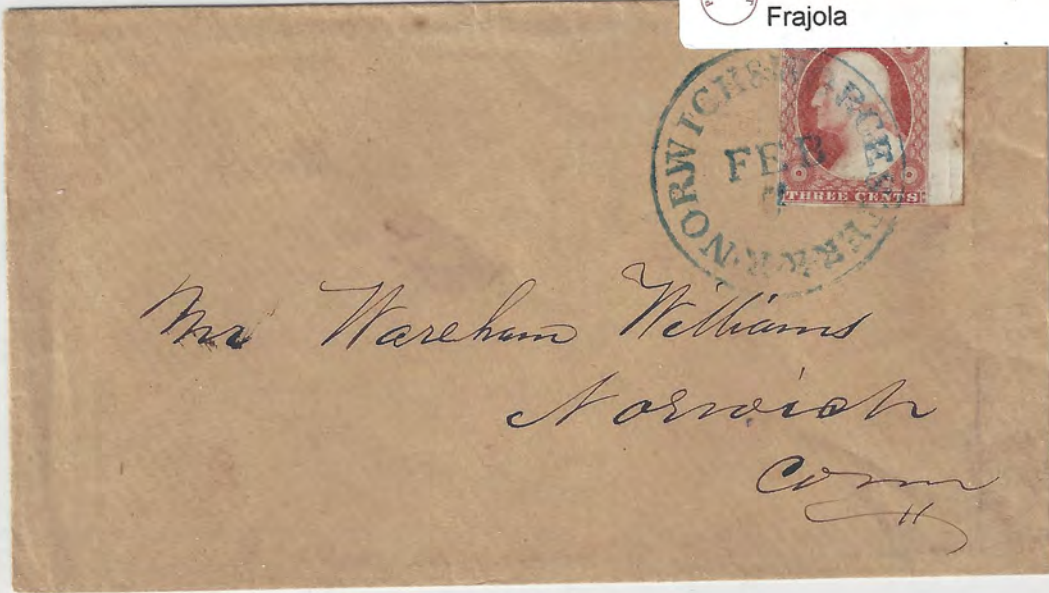 Frajola
NORWICH & WORCESTER R.R.
FEB
7
THREE CENTS
Mr Wareham Williams
Norwich
Conn